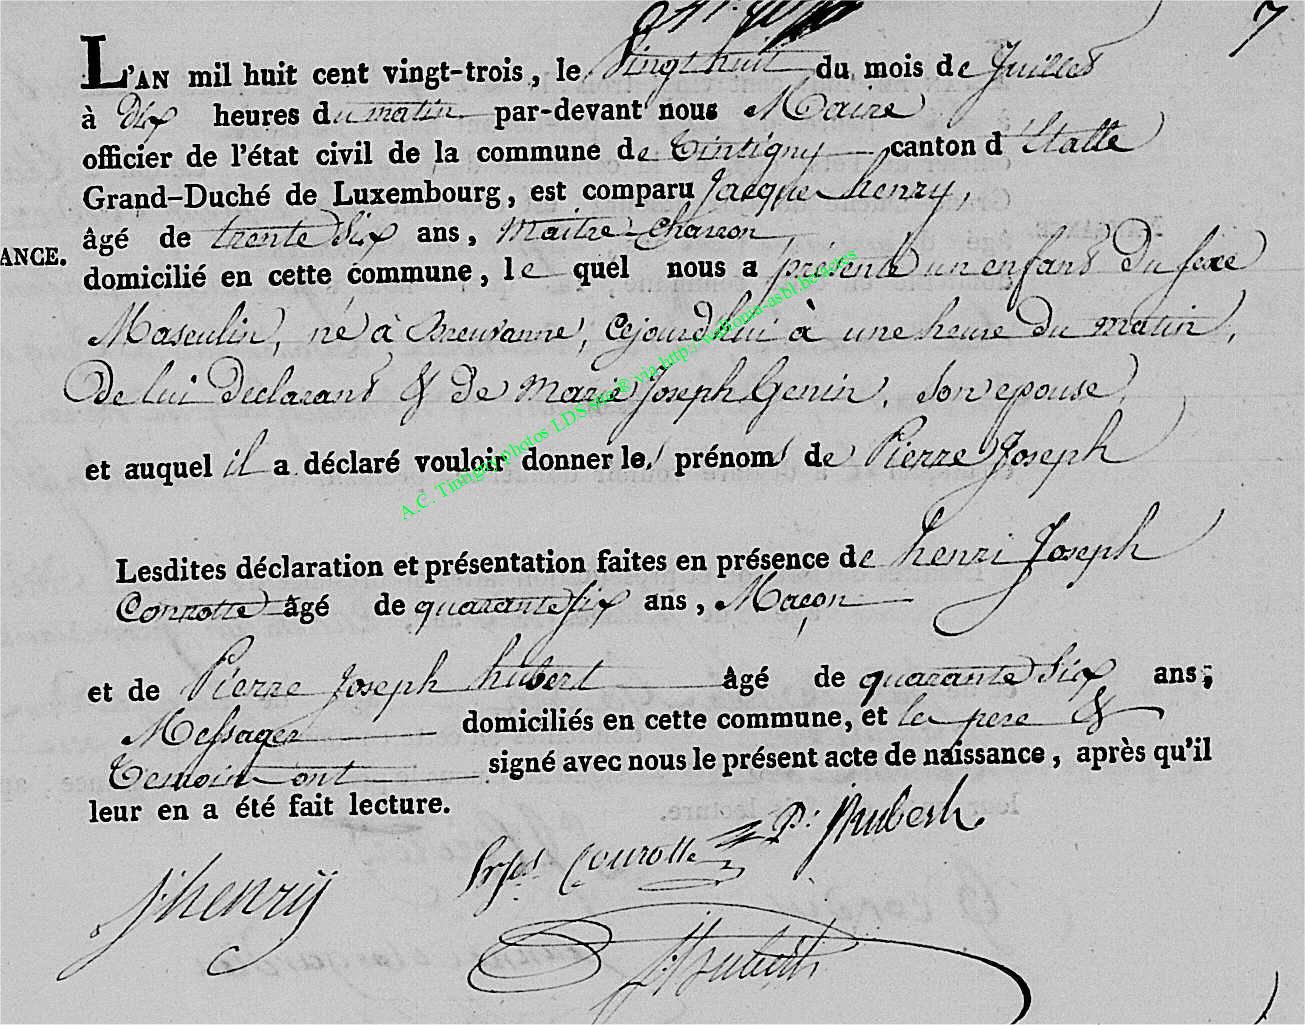 7
L'AN mil huit cent vingt-trois, le Vingt huit du mois de Juillet
à dix heures du matin par-devant nous Maire
officier de l'état civil de la commune de Tintigny canton d'Etalle
Grand-Duché de Luxembourg, est comparu Jacque henry,
âgé de trente Six ans, Maitre Charron
ANCE.
domicilié en cette commune, le quel nous a présenté un enfant du sexe
Masculin, né à Breuvanne, Cejourdhui à une heure du matin,
De lui Declarant & De Marie Joseph Genin, Son epouse,
et auquel il a déclaré vouloir donner les prénoms de Pierre Joseph
Lesdites déclaration et présentation faites en présence de henri Joseph
Conrotte âgé de quarante six ans, Maçon
et de Pierre Joseph hubert âgé de quarante Six ans;
Messager domiciliés en cette commune, et le pere &
Temoins ont signé avec nous le présent acte de naissance, après qu'il
leur en a été fait lecture.
J henry
Courotte
P: J hubert
Hubert
A.C. Tintigny photos LDS site © via http://wallonia-asbl.be/actes